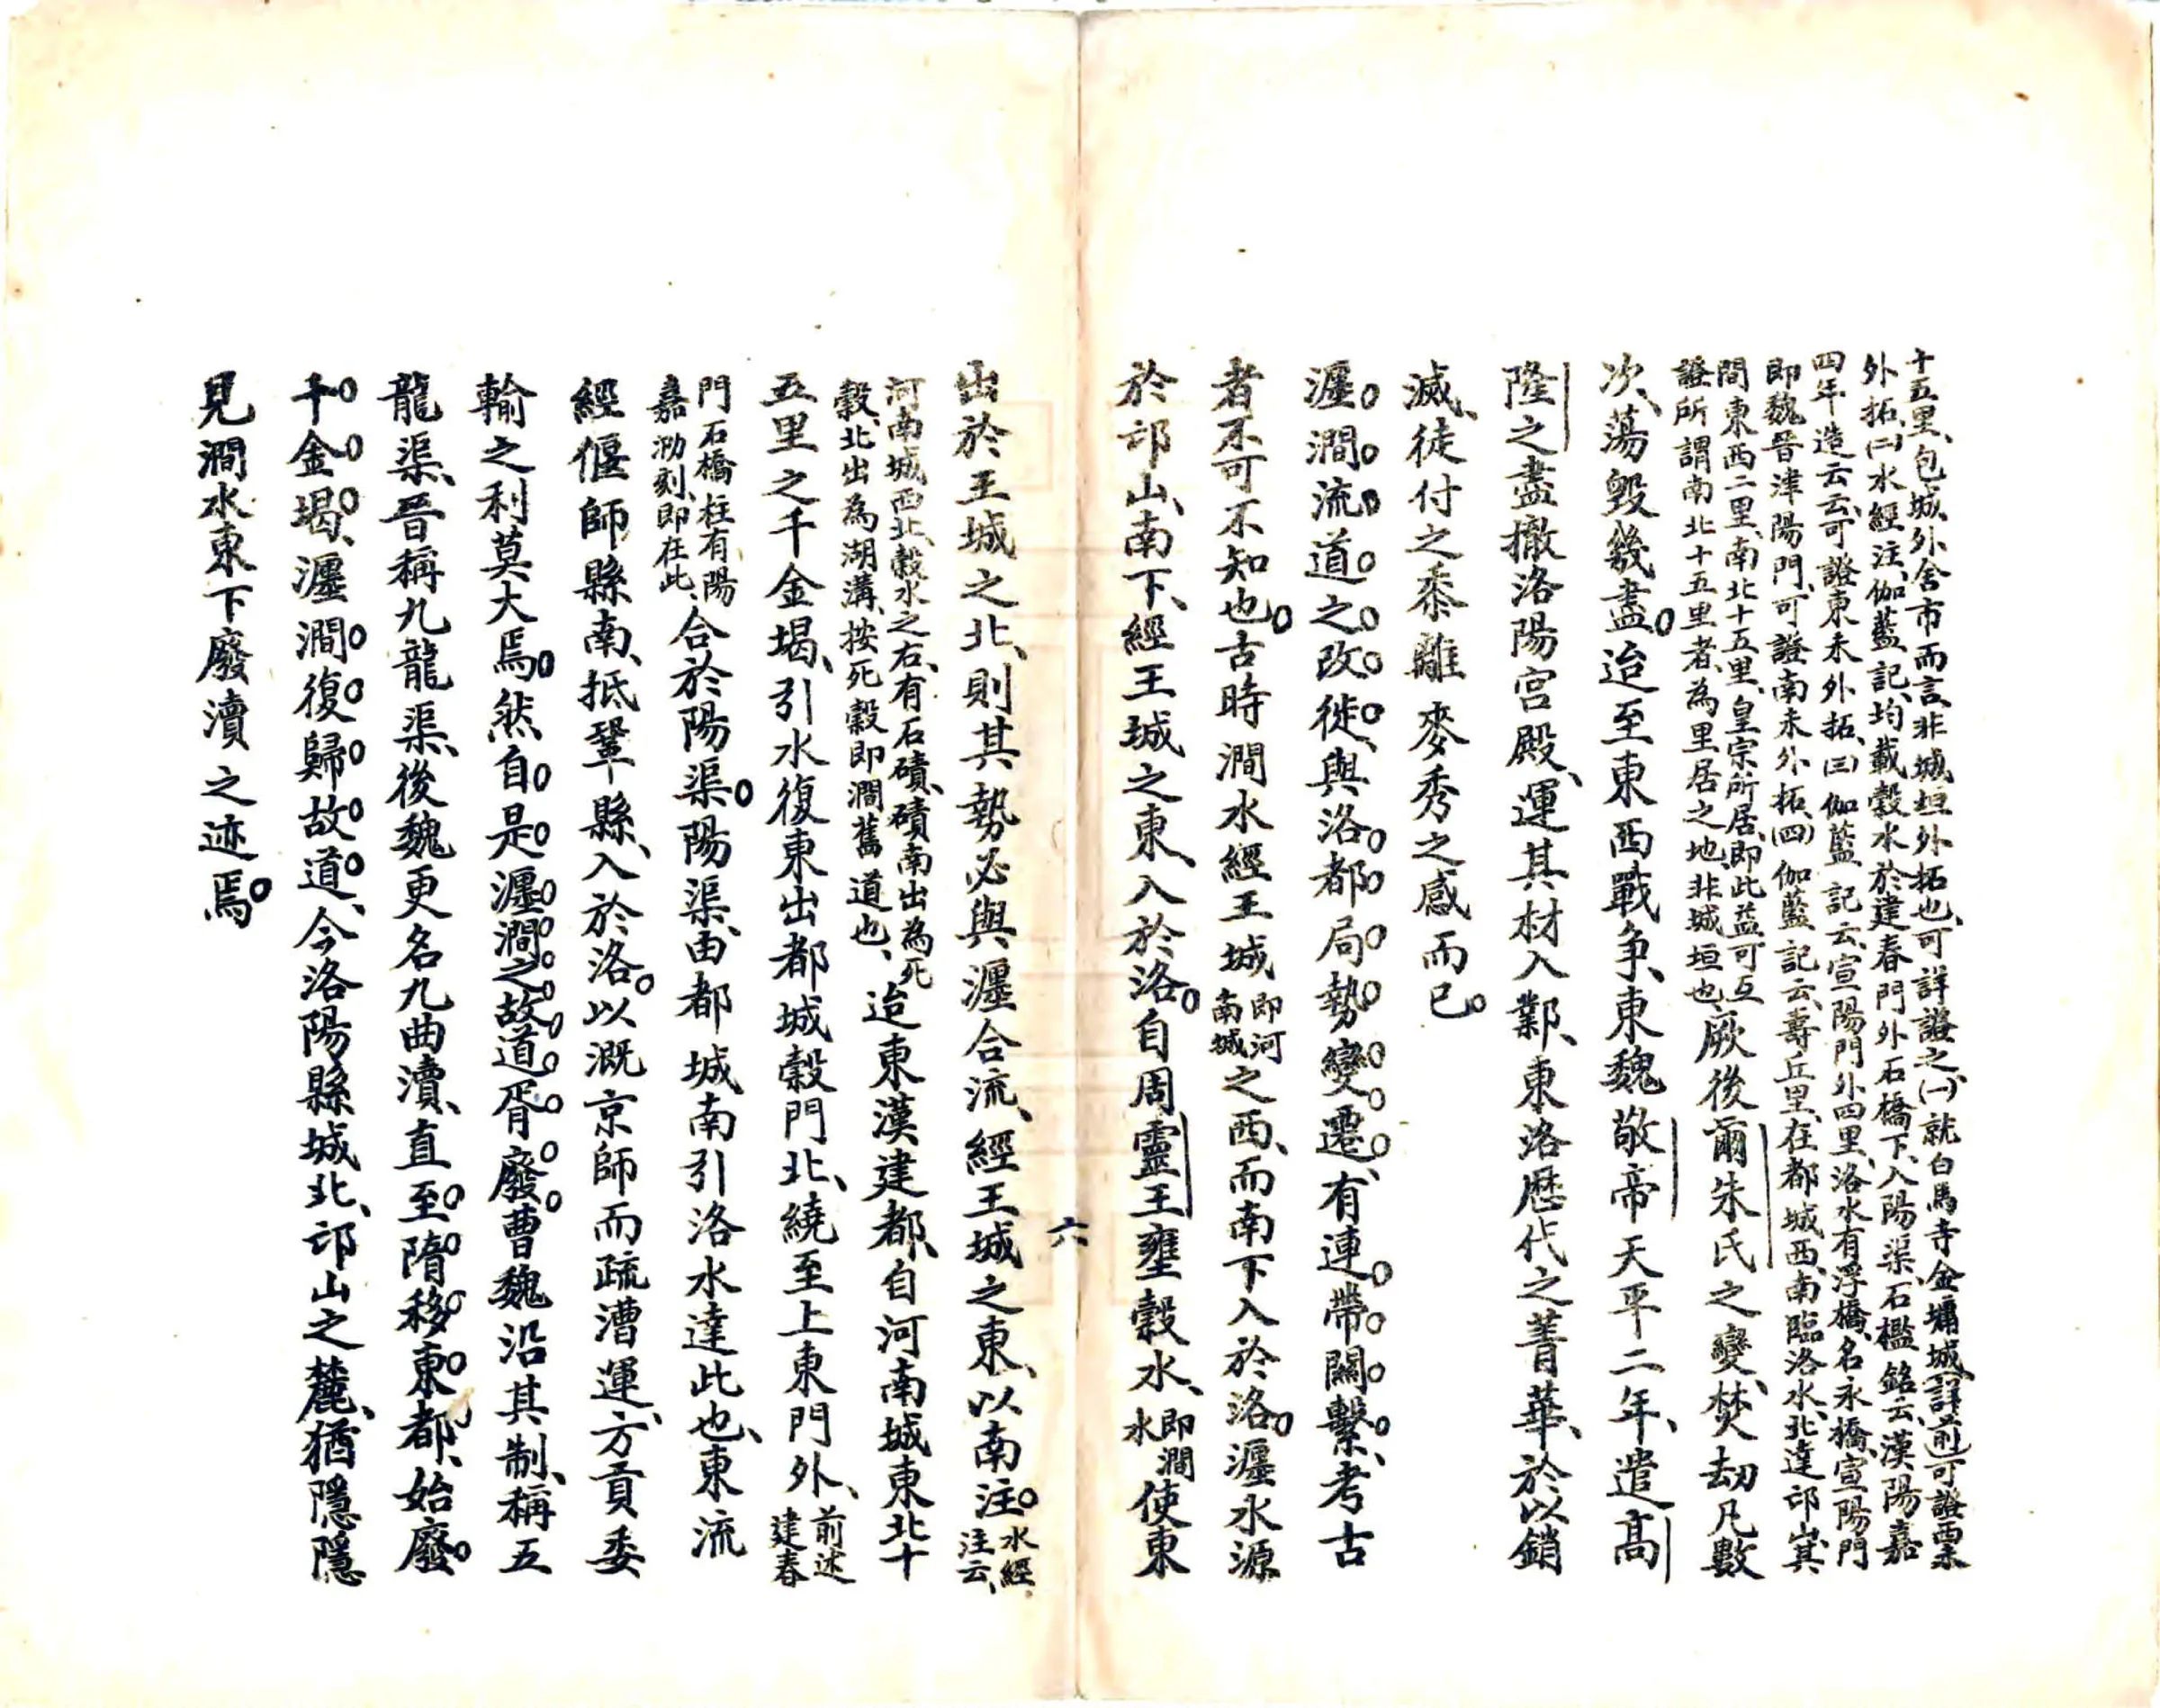 十五里、包城外舍市而言、非城垣外拓也、可詳證之、(一)就白馬寺金墉城(詳前)可證西未
外拓、(二)水經注、伽藍記、均載穀水於建春門外石橋下、入陽渠、石檻銘云、漢陽嘉
四年造云云、可證東未外拓、(三)伽藍記云、宣陽門外四里、洛水有浮橋、名永橋、宣陽門
即魏晉津陽門、可證南未外拓、(四)伽藍記云、壽丘里、在都城西、南臨洛水、北達邙山、其
間東西二里、南北十五里、皇宗所居、即此益可互
證所謂南北十五里者、為里居之地、非城垣也、厥後爾朱氏之變、焚劫凡數
次、蕩毀幾盡。迨至東西戰爭、東魏敬帝天平二年、遣高
隆之盡撤洛陽宮殿、運其材入鄴、東洛歷代之菁華、於以銷
滅、徒付之黍離麥秀之感而已。
瀍澗流道之改徙、與洛都局勢變遷、有連帶關繫、考古
者不可不知也。古時澗水經王城即河南城之西、而南下入於洛。瀍水源
於邙山、南下、經王城之東、入於洛。自周靈王壅穀水、即澗水使東
六
出於王城之北、則其勢必與瀍合流、經王城之東、以南注。水經注云、
河南城西北、穀水之右、有石磧、磧南出為死
穀、北出為湖溝、按死穀即澗舊道也、迨東漢建都、自河南城東北十
五里之千金堨、引水復東出都城穀門北、繞至上東門外、前述建春
門石橋柱有陽
嘉泐刻、即在此、合於陽渠。陽渠、由都城南引洛水達此也、東流
經偃師縣南、抵鞏縣、入於洛。以溉京師而疏漕運、方貢委
輸之利莫大焉。然自是瀍澗之故道胥廢曹魏沿其制、稱五
龍渠、晉稱九龍渠、後魏更名九曲瀆、直至隋移東都、始廢。
千金堨、瀍澗復歸故道、今洛陽縣城北、邙山之麓、猶隱隱
見澗水東下廢瀆之迹焉。